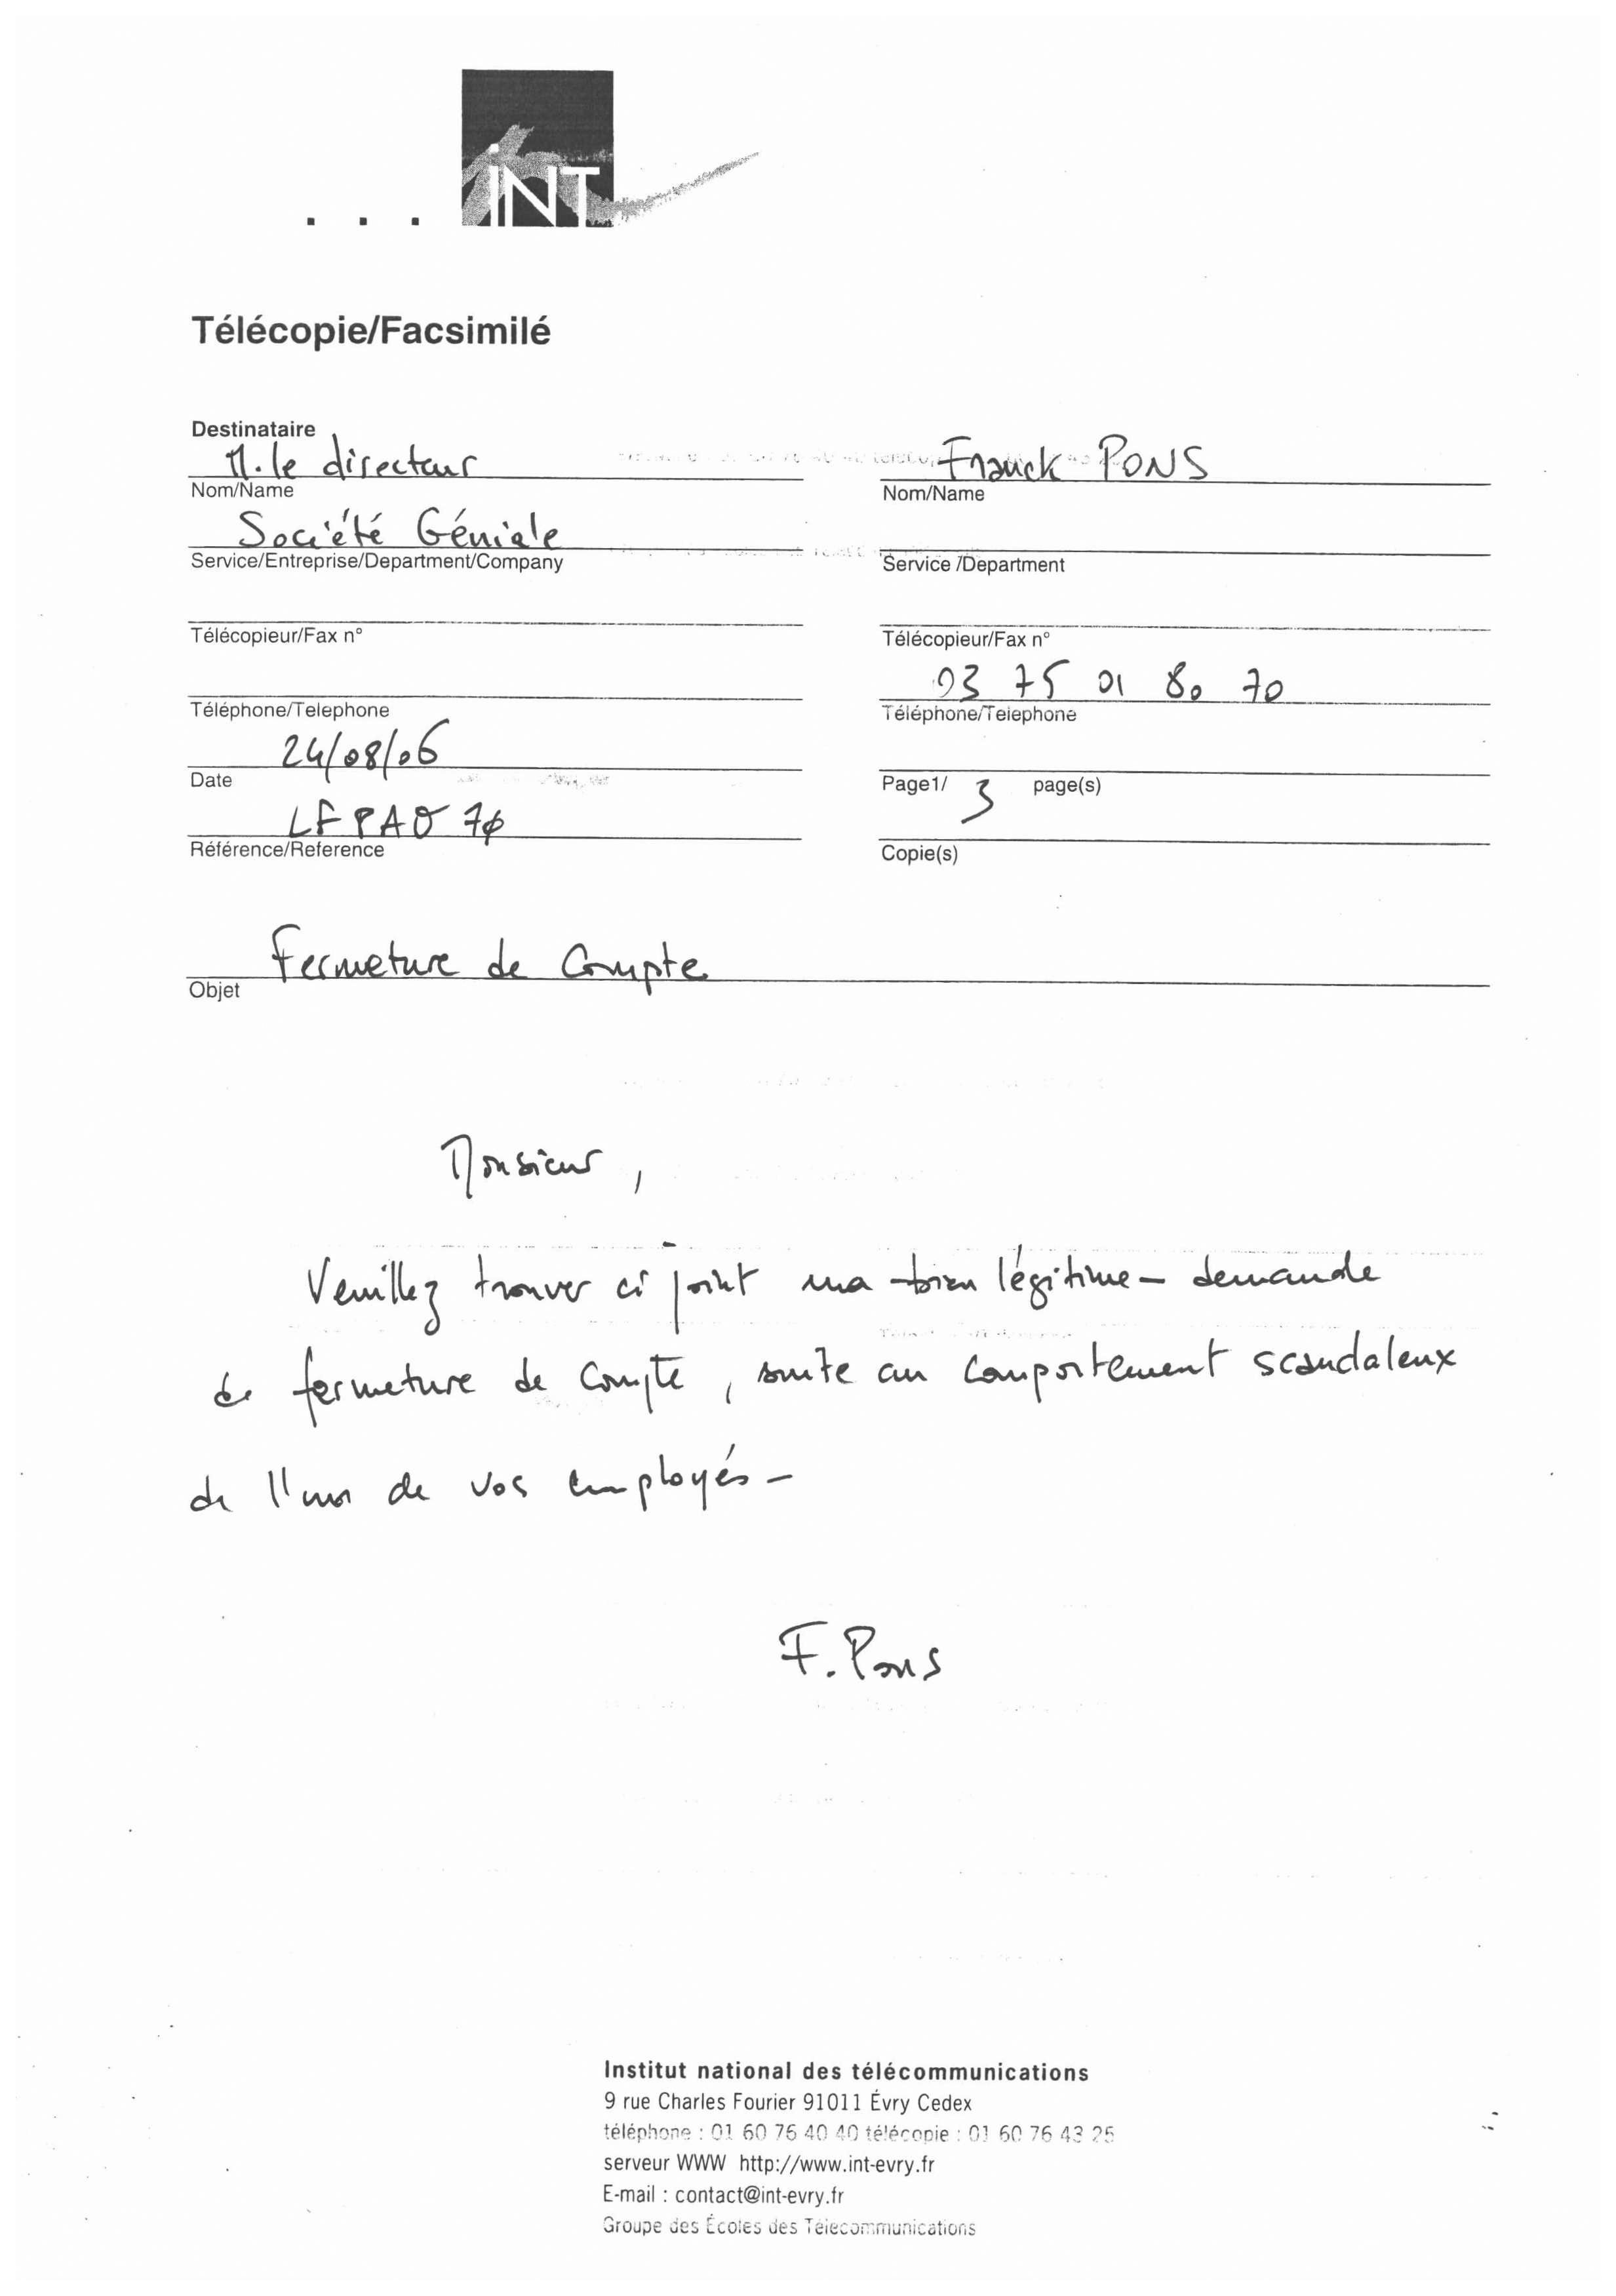 INT
Télécopie/Facsimilé
Destinataire
M. le directeur
Nom/Name
Société Géniale
Service/Entreprise/Department/Company
Télécopieur/Fax n°
Téléphone/Telephone
24/08/06
Date
LFPAO 70
Référence/Reference
Franck PONS
Nom/Name
Service /Department
Télécopieur/Fax n°
03 75 01 80 70
Téléphone/Telephone
Page1/ 3 page(s)
Copie(s)
Fermeture de Compte
Objet
Monsieur,
Veuillez trouver ci joint ma -bien légitime- demande
de fermeture de compte, suite au comportement scandaleux
de l'un de vos employés-
F. Pons
Institut national des télécommunications
9 rue Charles Fourier 91011 Évry Cedex
téléphone : 01 60 76 40 40 télécopie : 01 60 76 43 25
serveur WWW http://www.int-evry.fr
E-mail : contact@int-evry.fr
Groupe des Écoles des Télécommunications